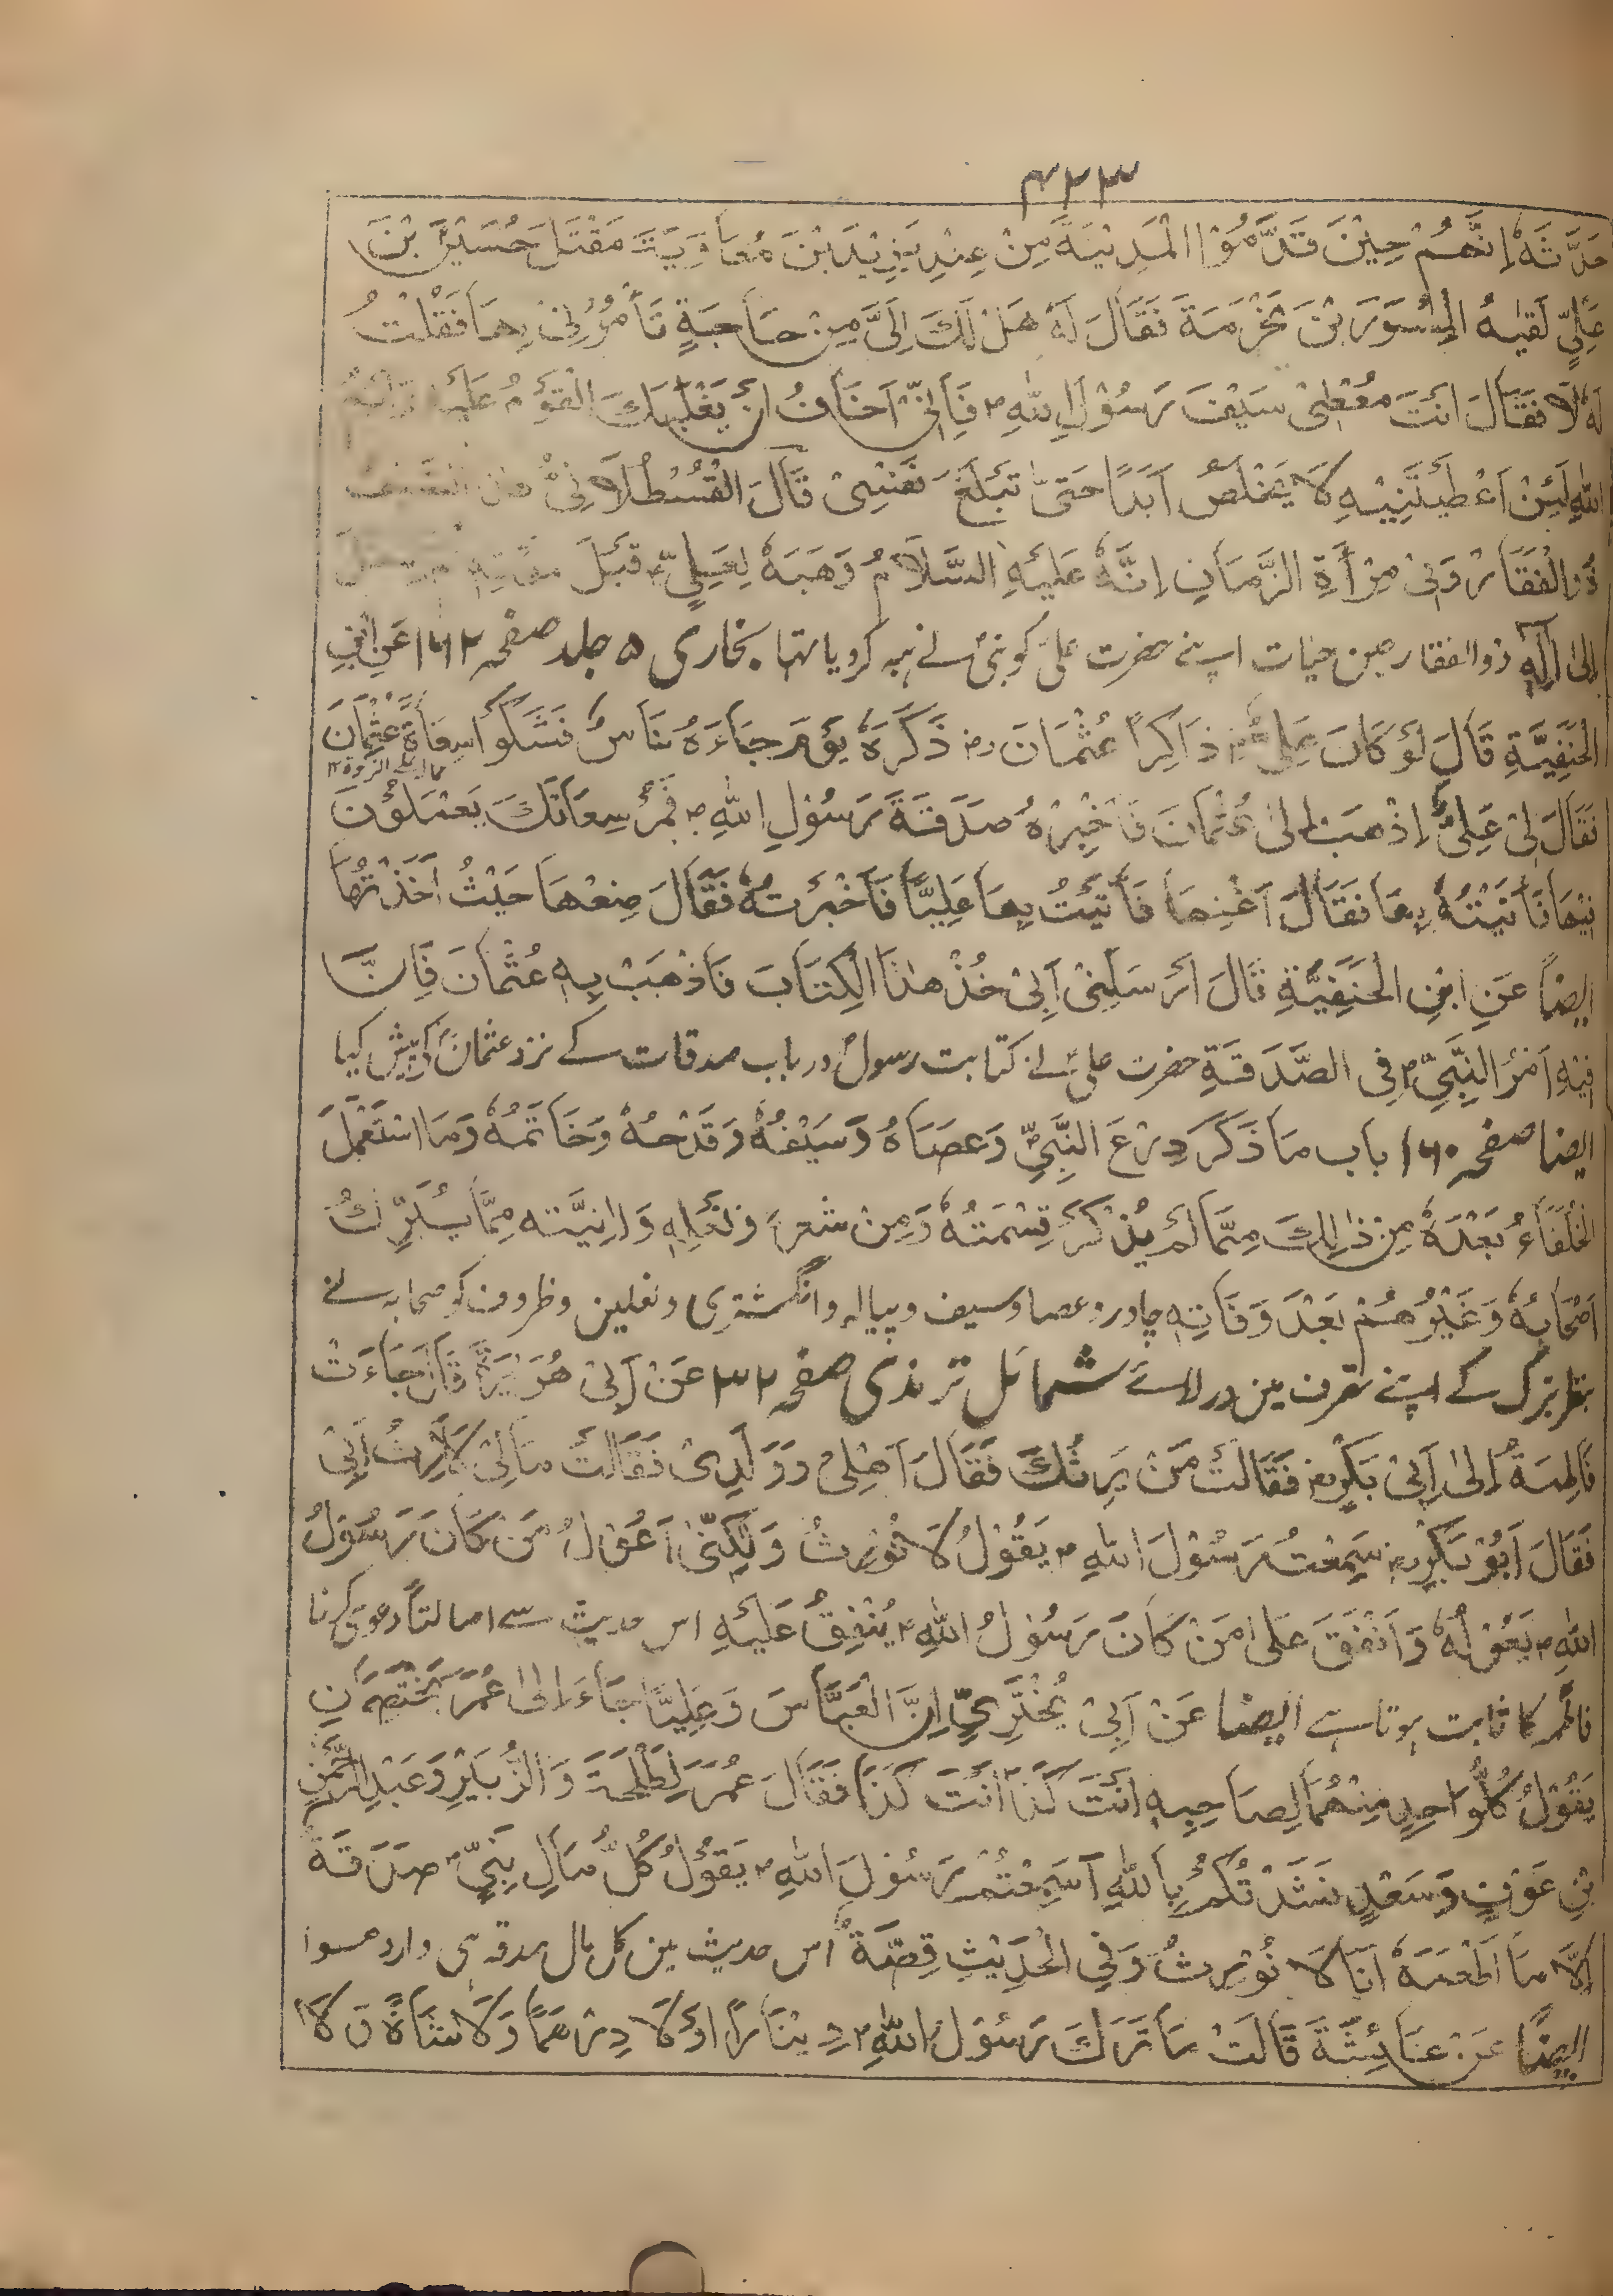 ۴۲۳
حَدَّثَهٗ اِنَّهُمْ حِيْنَ قَدَّمُوْا الْمَدِيْنَةَ مِنْ عِنْدِ يَزِيْدَ بْنَ مُعَاوِيَةَ مَقْتَلَ حُسَيْنَ بْنَ
عَلِيٍّ لَقِيَهُ الْمِسْوَرَ بْنَ مَخْرَمَةَ فَقَالَ لَهٗ هَلْ لَكَ اِلَيَّ مِنْ حَاجَةٍ تَأْمُرُنِيْ بِهَا فَقُلْتُ
لَهٗ لَا فَقَالَ اَنْتَ مُعْطِيْ سَيْفَ رَسُوْلِ اللّٰهِ ؐ فَاِنِّيْ اَخَافُ اَنْ يَغْلِبَكَ الْقَوْمُ عَلَيْهِ وَاَيْمُ
اللّٰهِ لَئِنْ اَعْطَيْتَنِيْهِ لَا يَخْلُصُ اَبَدًا حَتّٰى تَبْلُغَ نَفْسِيْ قَالَ الْقُسْطُلَانِيْ هٰذَا السَّيْفُ
ذُوالْفَقَارْ وَفِيْ مِرْأَةِ الزَّمَانِ اِنَّهٗ عَلَيْهِ السَّلَامُ وَهَبَهٗ لِعَلِيٍّ ؑ قَبْلَ
اِلٰى اٰلِهٖ ذوالفقار حین حیات اپنے حضرت علیؑ کو نبیؐ نے ہبہ کر دیا تہا بخاری ۵ جلد صفحہ ۱۶۲ عَنِ ابْنِ
الْحَنَفِيَّةِ قَالَ لَوْ كَانَ عَلِيٌّ ؓ ذَاكِرًا عُثْمَانَ رض ذَكَرَهٗ يَوْمَ جَاءَهُ نَاسٌ فَشَكَوْا سِعَاةَ عُثْمَانَ
فَقَالَ لِيْ عَلِيٌّ اِذْهَبْ اِلٰى عُثْمَانَ فَاَخْبِرْهُ صَدَقَةَ رَسُوْلِ اللّٰهِ ؐ فَمُرْ سِعَاتَكَ يَعْمَلُوْنَ
فِيْهَا فَاَتَيْتُهٗ بِهَا فَقَالَ اَغْنِهَا فَأَتَيْتُ بِهَا عَلِيًّا فَاَخْبَرْتُهٗ فَقَالَ ضِعْهَا حَيْثُ اَخَذْتَهَا
ایضاً عَنِ ابْنِ الْحَنَفِيَّةِ قَالَ اَرْسَلَنِيْ اَبِيْ خُذْ هٰذَا الْكِتَابَ فَاذْهَبْ بِهٖ عُثْمَانَ فَاِنَّ
فِيْهِ اَمْرَ النَّبِيِّ ؐ فِي الصَّدَقَةِ حضرت علیؑ نے کتابت رسولؐ در باب صدقات کے نزد عثمانؓ کے پیش کیا
ایضا صفحہ ۱۶۰ باب مَا ذَكَرَ دِرْعَ النَّبِيِّ وَعَصَاهُ وَسَيْفُهٗ وَقَدْحُهٗ وَخَاتَمُهٗ وَمَا اسْتَعْمَلَ
الْخُلَفَاءُ بَعْدَهٗ مِنْ ذَالِكَ مِمَّا لَمْ يُذْكَرْ قِسْمَتُهٗ وَمِنْ شَعرِهٖ وَنَعْلِهٖ وَاٰنِيَّتهٖ مِمَّا يُتَبَرَّكُ
اَصْحَابُهٗ وَغَيْرُهُمْ بَعْدَ وَفَاتِهٖ چادر و عصا و سیف و پیالہ و انگشتری و نعلین و ظروف کو صحابہ نے
بنظر تبرک کے اپنے تصرف مین در لائے شمائل ترمذی صفحہ ۳۲ عَنْ اَبِيْ هُرَيْرَةَ قَالَ جَاءَتْ
فَاطِمَةُ اِلٰى اَبِيْ بَكْرٍ رض فَقَالَتْ مَنْ يَرِثُكَ فَقَالَ اَهْلِيْ وَوَلَدِيْ فَقَالَتْ مَالِيْ لَا اَرِثُ اَبِيْ
فَقَالَ اَبُوْ بَكْرٍ رض سَمِعْتُ رَسُوْلَ اللّٰهِ ؐ يَقُوْلُ لَا نُوْرِثُ وَلٰكِنِّيْ اَعُوْلُ مَنْ كَانَ رَسُوْلُ
اللّٰهِ ؐ يَعُوْلُهٗ وَاَنْفَقَ عَلٰى مَنْ كَانَ رَسُوْلُ اللّٰهِ ؐ يُنْفِقُ عَلَيْهِ اس حدیث سے اصالتاً دعوی کرنا
فاطمہؑ کا ثابت ہوتا ہے ایضا عَنْ اَبِيْ بُخْتَرِيِّ اِنَّ الْعَبَّاسَ وَعَلِيًّا جَاءَ اِلٰى عُمَرَ يَخْتَصِمَانِ
يَقُوْلُ كُلُّ وَاحِدٍ مِنْهُمَا لِصَاحِبِهٖ اَنْتَ كَذَا اَنْتَ كَذَا فَقَالَ عُمَرَ لِطَلْحَةَ وَالزُّبَيْرِ وَعَبْدِ الرَّحْمٰنِ
بْنِ عَوْفٍ وَسَعْدٍ نَشَدْتُكُمْ بِاللّٰهِ اَسَمِعْتُمْ رَسُوْلَ اللّٰهِ ؐ يَقُوْلُ كُلُّ مَالِ نَبِيٍّ ؐ صَدَقَةٌ
اِلَّا مَا اَطْعَمَهٗ اَنَا لَا نُوْرِثُ وَفِي الْحَدِيْثِ قِصَّةٌ اس حدیث مین کل مال صدقہ ہی وارد ہوا
ایضًا عَنْ عَائِشَةَ قَالَتْ مَا تَرَكَ رَسُوْلُ اللّٰهِ ؐ دِيْنَارًا وَلَا دِرْهَمًا وَلَا شَاةً وَلَا